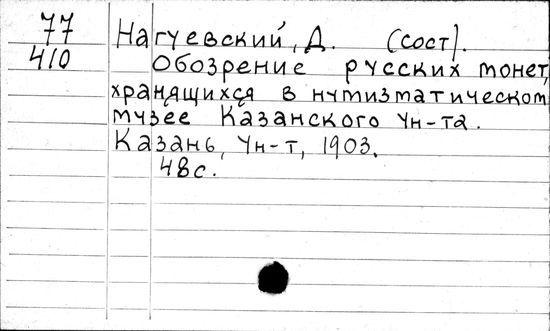 77 Нагуевский, Д. (сост).
410 Обозрение русских монет,
хранящихся в нумизматическом
музее Казанского Ун-та.
Казань, Ун-т, 1903.
48с.